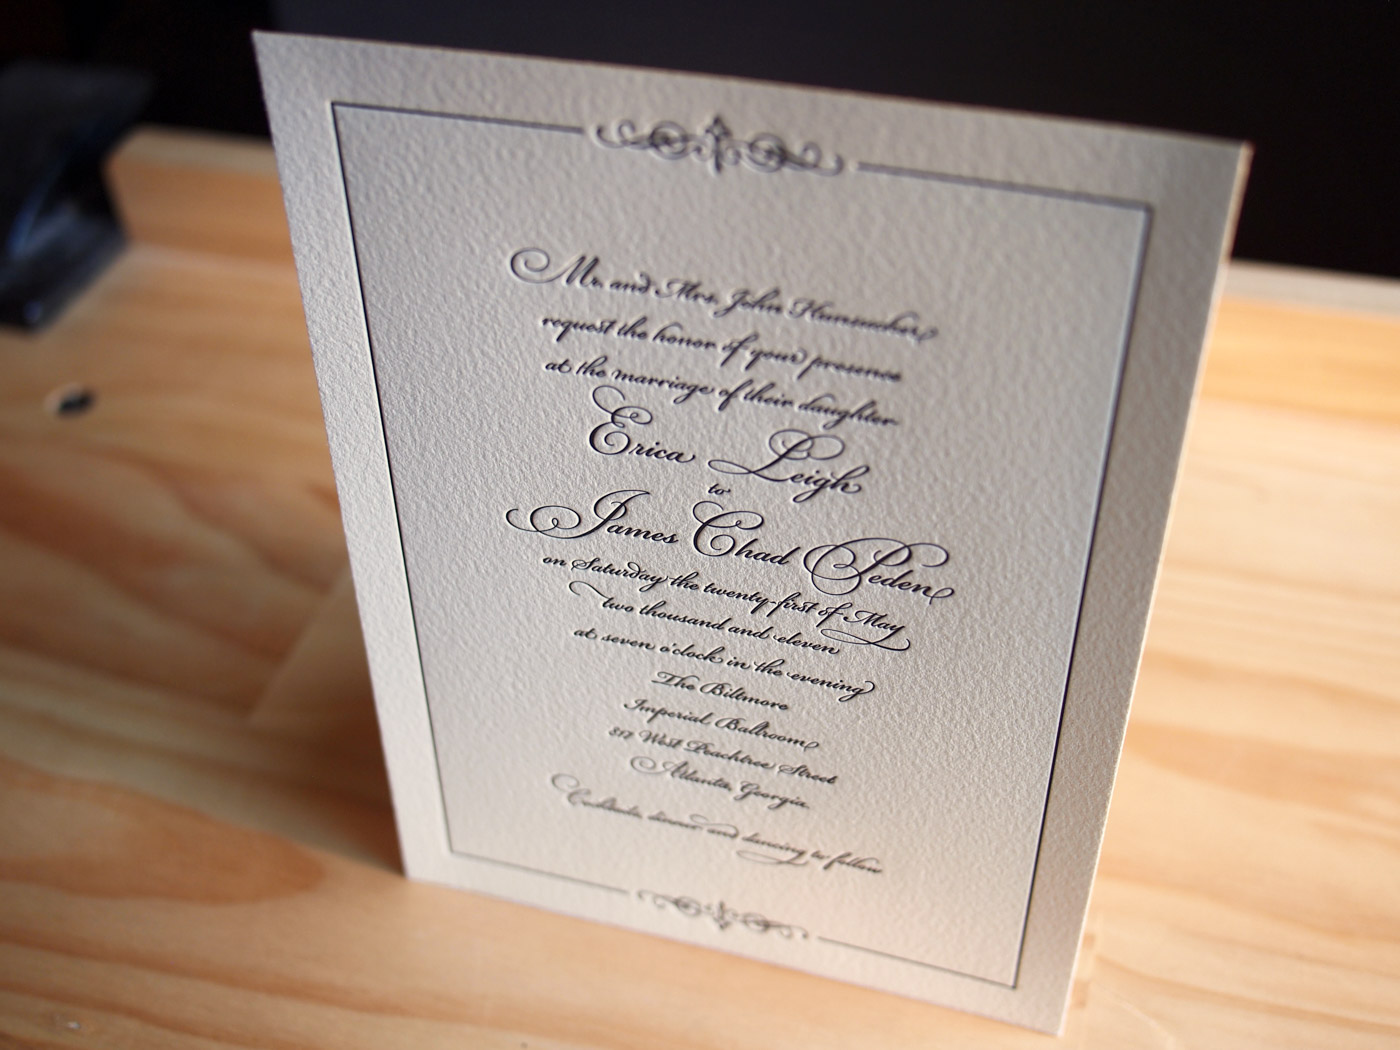 Mr. and Mrs. John Hunsucker
request the honor of your presence
at the marriage of their daughter
Erica Leigh
to
James Chad Peden
on Saturday the twenty-first of May
two thousand and eleven
at seven o'clock in the evening
The Biltmore
Imperial Ballroom
817 West Peachtree Street
Atlanta, Georgia
Cocktails, dinner and dancing to follow